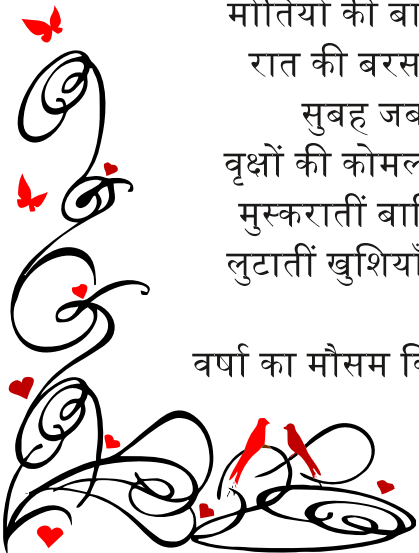 मोतियों की
रात की
सुबह जब
वृक्षों की
मुस्करातीं
लुटातीं खुशियाँ
वर्षा का मौसम